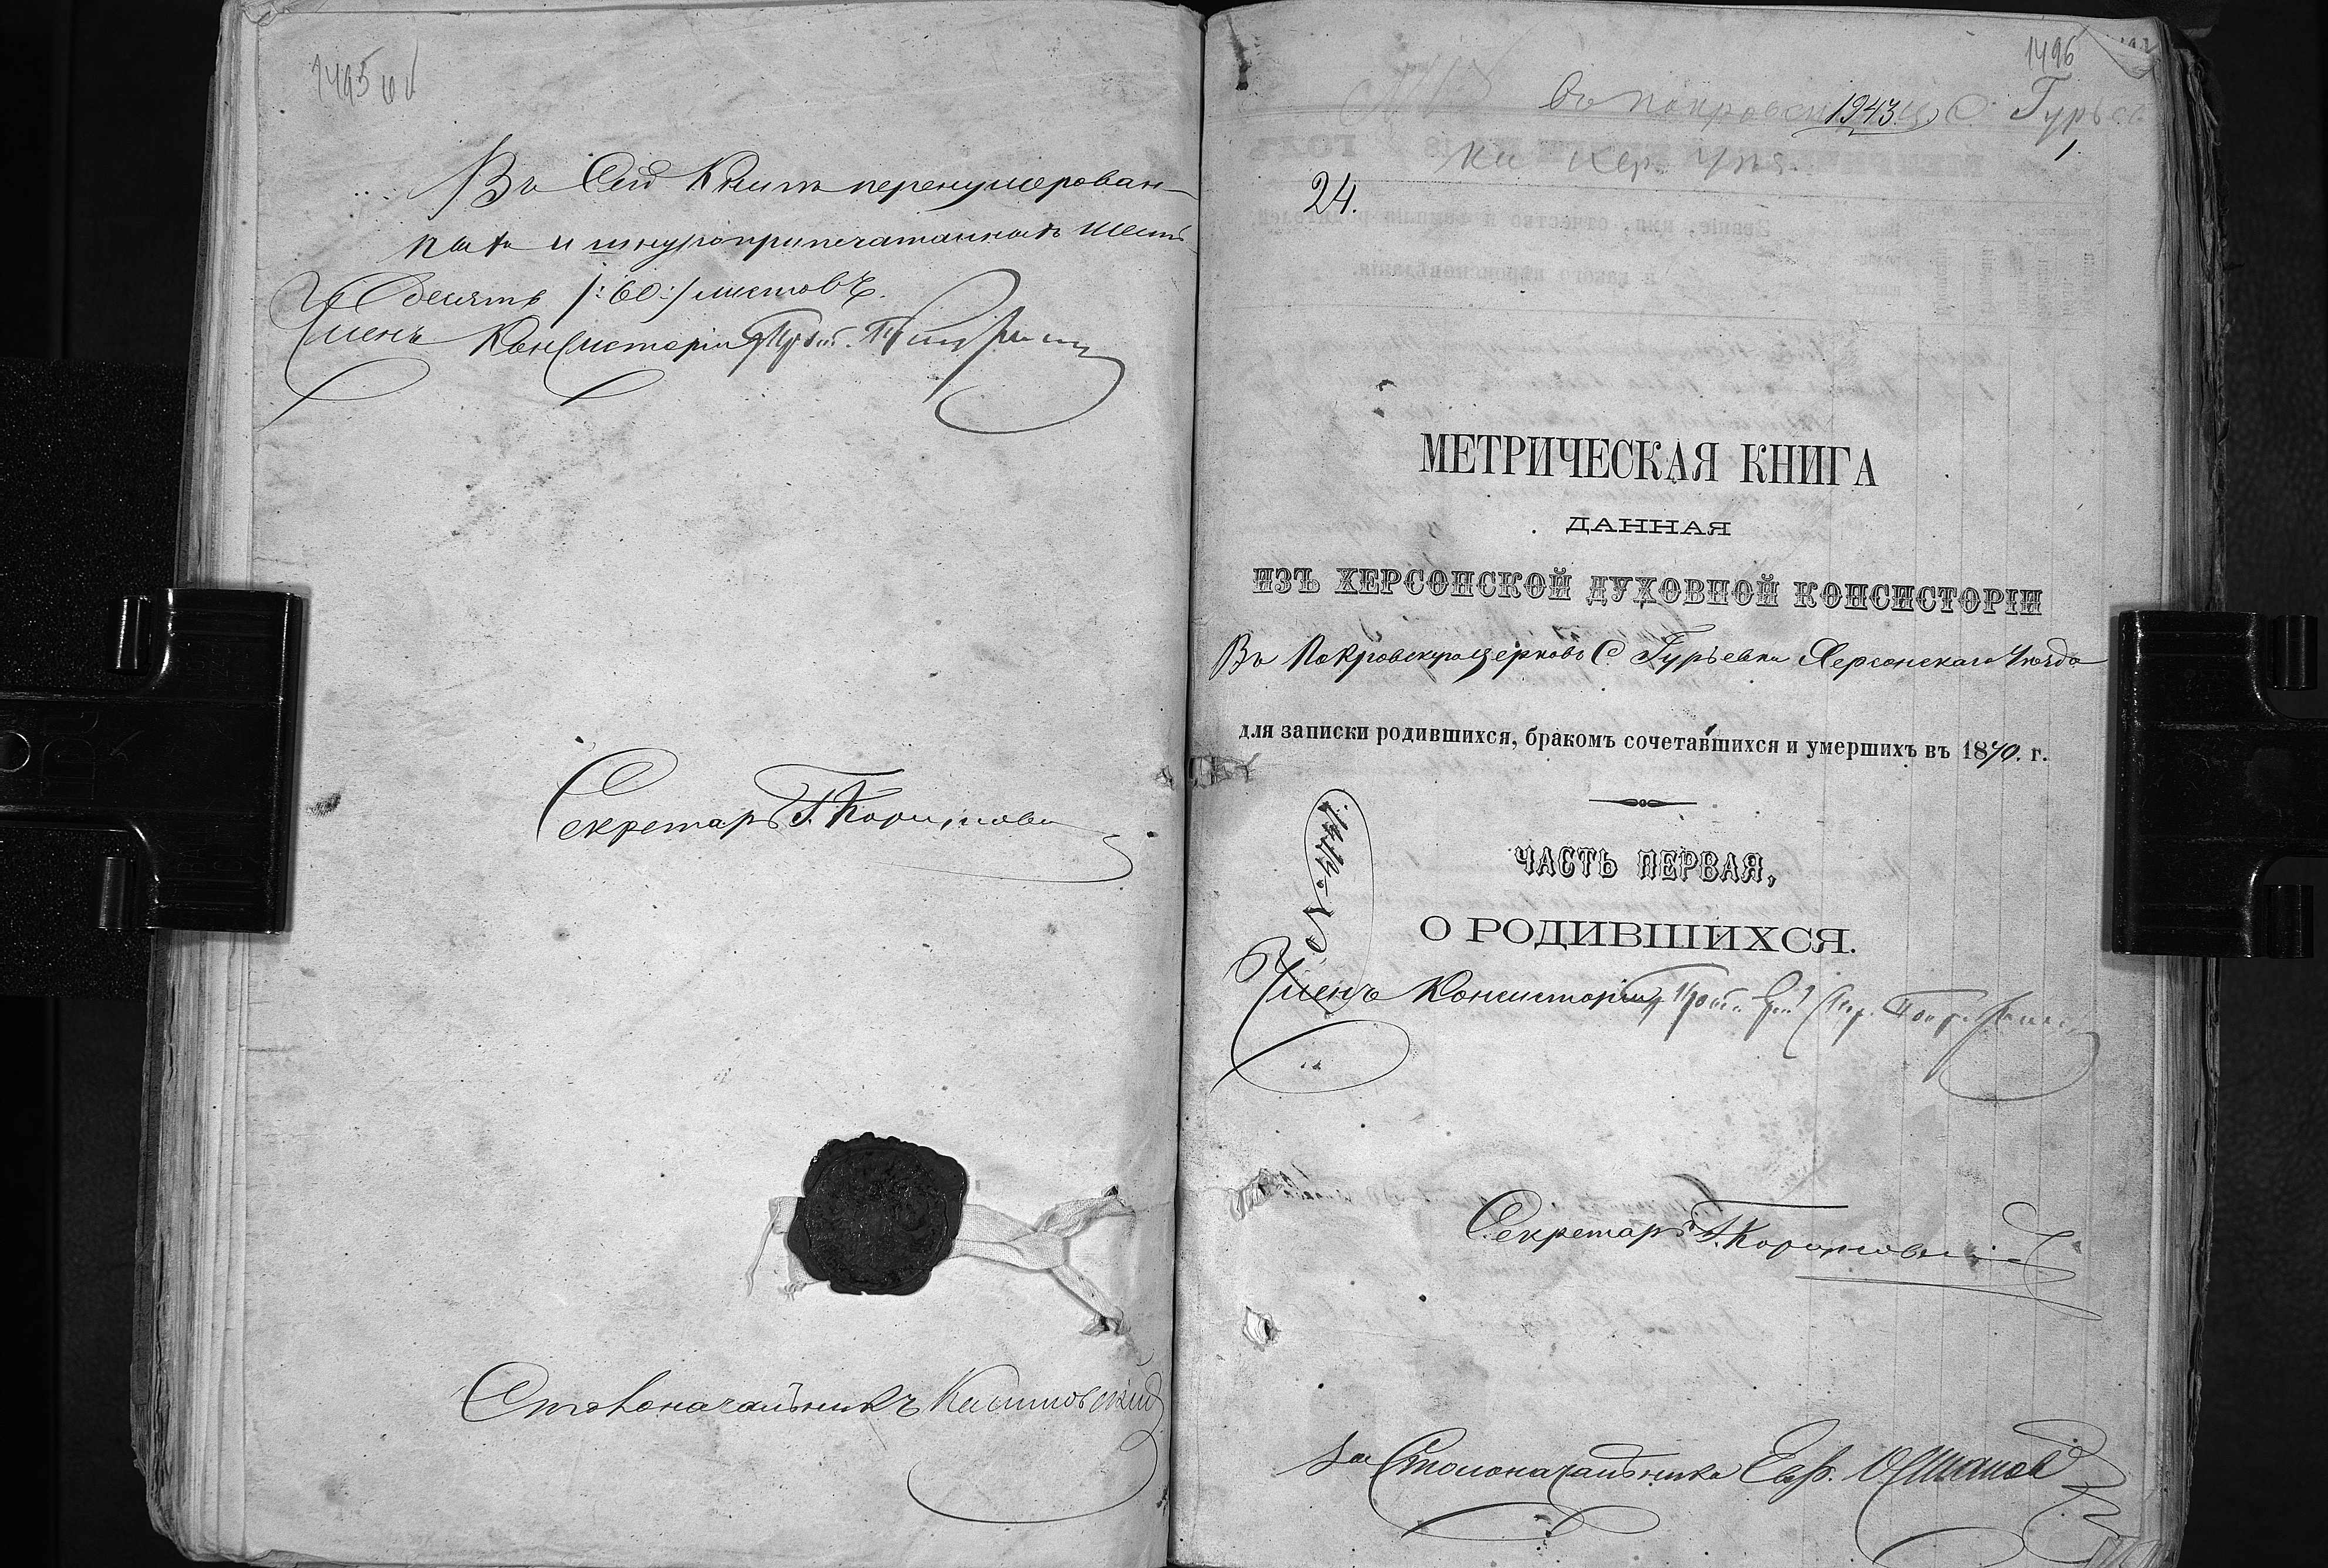 1495 об
Въ Сей Книгѣ перенумерован-
ныхъ и шнуроприпечатанныхъ шесть
десятъ /:60:/ листовъ.
Членъ Консисторіи Прот.
Секретарь Г.
Столоначальникъ
1496
въ Покровск 1943 С. Гурьев
ки Хер. уѣз.
1.
24.
МЕТРИЧЕСКАЯ КНИГА
ДАННАЯ
ИЗЪ ХЕРСОНСКОЙ ДУХОВНОЙ КОНСИСТОРІИ
Въ Покровскую церковь С. Гурьевки Херсонскаго Уѣзда
для записки родившихся, бракомъ сочетавшихся и умершихъ въ 1870. г.
ЧАСТЬ ПЕРВАЯ,
О РОДИВШИХСЯ.
Членъ Консисторіи Прот.
Секретарь Г.
За Столоначальника